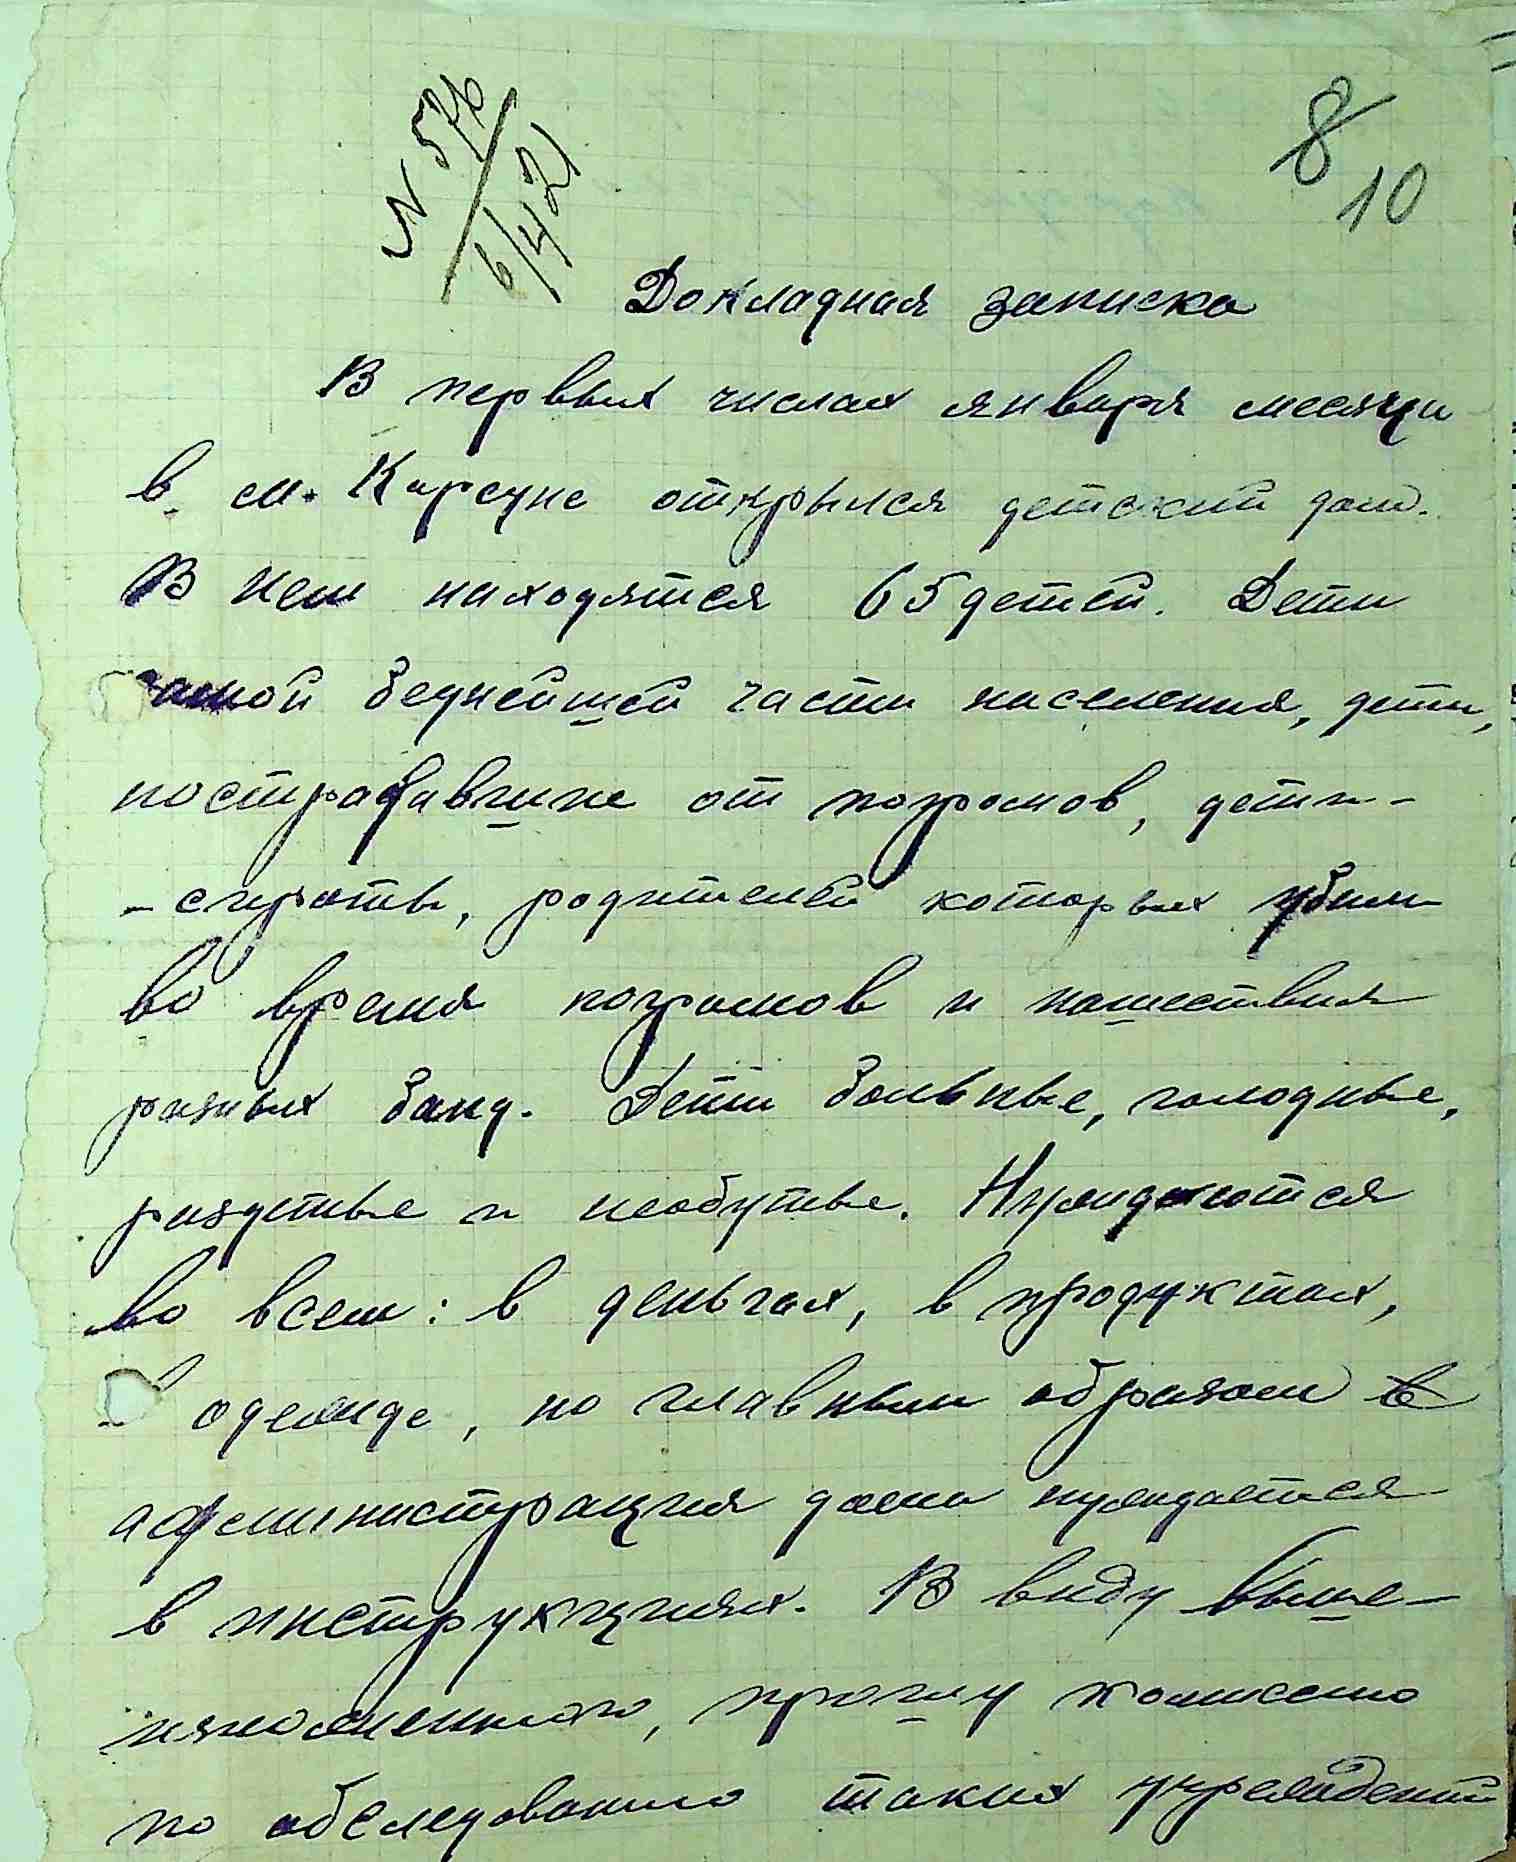 8
10
Докладная записка
В первых числах января месяца
в м. Карсуне открылся детский дом.
В нем находятся 65 детей. Дети
самой беднейшей части населения, дети,
пострадавшие от погромов, дети-
-сироты, родителей которых убили
во время погромов и нашествия
разных банд. Дети больные, голодные,
раздетые и необутые. Нуждаются
во всем: в деньгах, в продуктах,
в одежде, но главным образом
администрация дома нуждается
в инструкциях. В виду выше-
изложенного, прошу комиссию
по обследованию таких учреждений